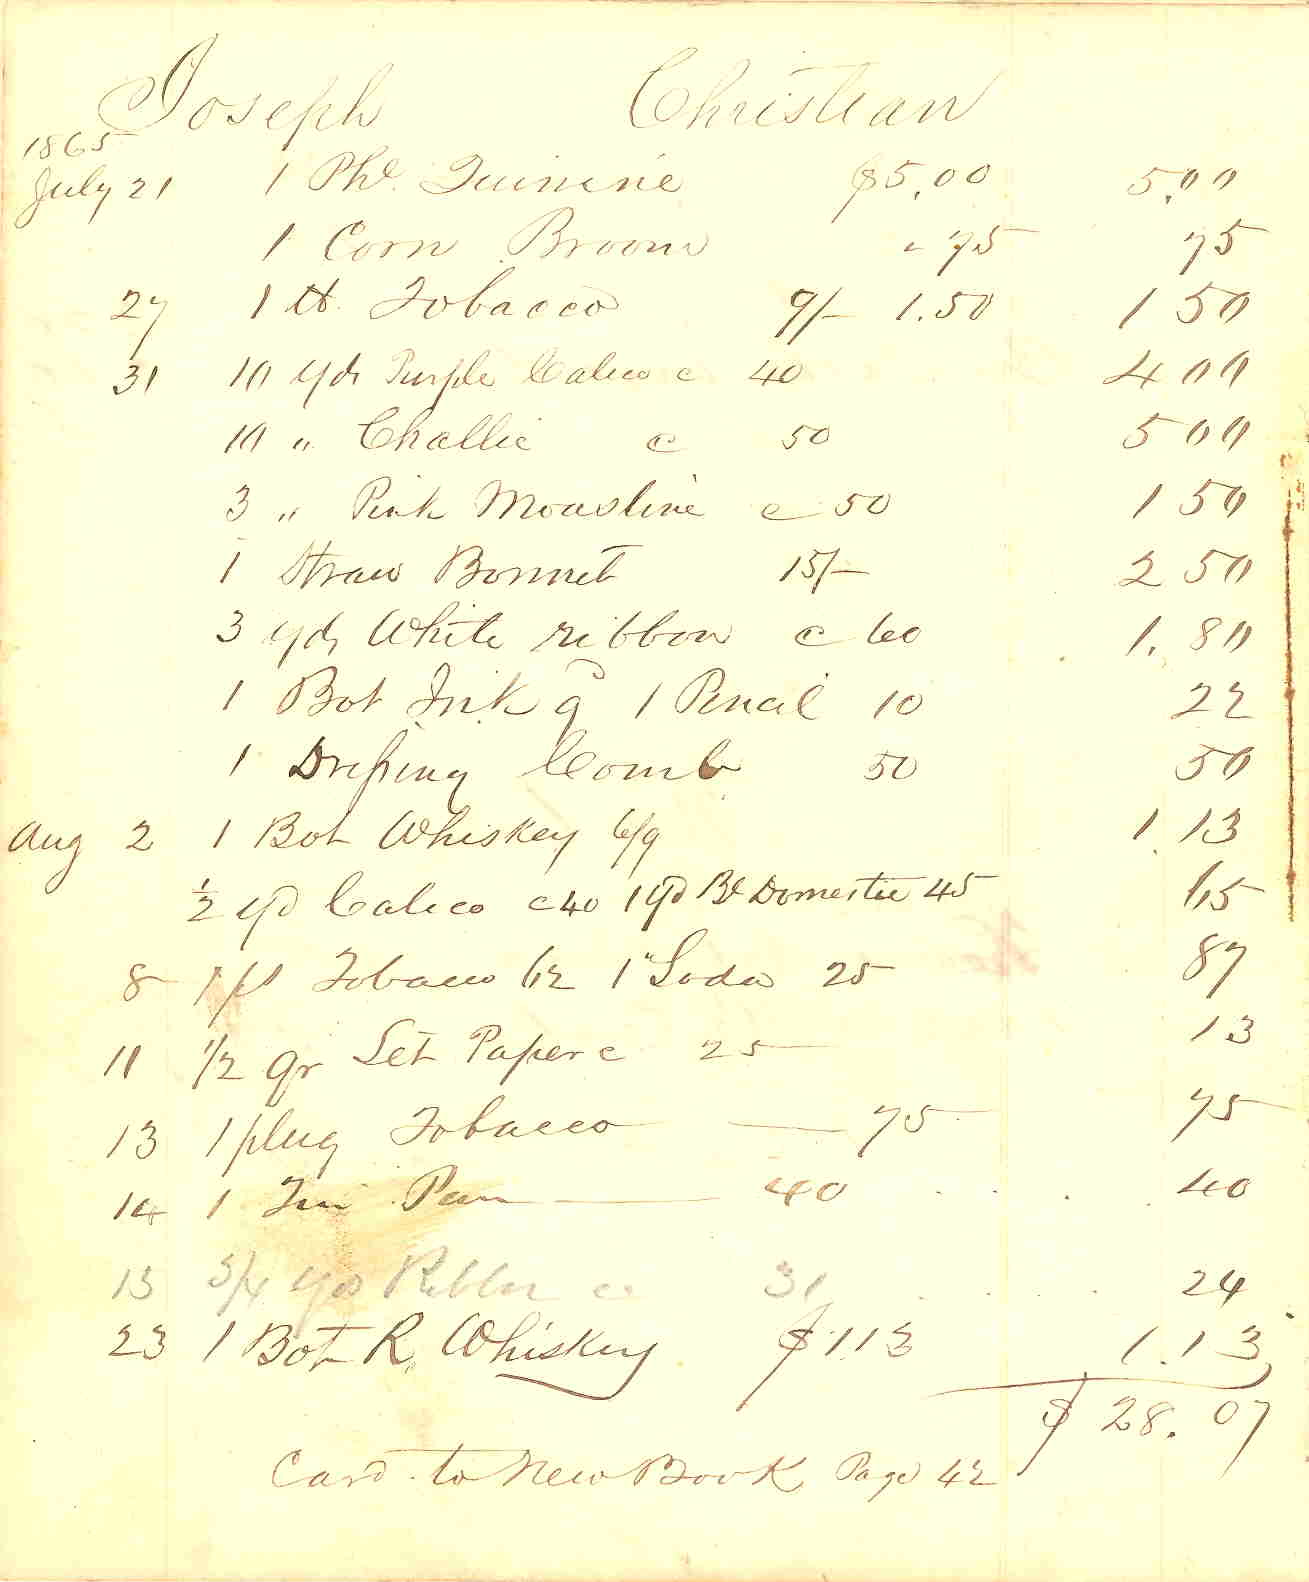 Joseph Christian
1865
July 21 1 Phl. Quinine $5.00 5.00
1 Corn Broom " 75 75
27 1 lb. Tobacco 9/- 1.50 1 50
31 10 yds Purple Calico c 40 4 00
10 " Challie c 50 5 00
3 " Pink Mousline c 50 1 50
1 Straw Bonnet 15/- 2 50
3 yds White ribbon c 60 1.80
1 Bot Ink & 1 Pencil 10 22
1 Dressing Comb 50 50
Aug 2 1 Bot Whiskey 6/9 1.13
1/2 yd Calico c 40 1 yd Bl Domestic 45 65
8 1 Tobacco 62 1 " Soda 25 87
11 1/2 qr Let Paper c 25 13
13 1 plug Tobacco — 75 75
14 1 Tin Pan — 40 40
15 3/4 yds Ribbn c 31 24
23 1 Bot R. Whiskey $1.13 1.13
$ 28.07
Card. to New Book Page 42